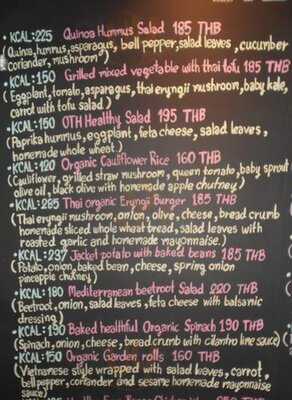 • KCAL:225 Quinoa Hummus Salad 185 THB
(Quinoa, hummus, asparagus, bell pepper, salad leaves, cucumber
coriander, mushroom)
• KCAL:150 Grilled mixed vegetable with thai tofu 185 THB
(Eggplant, tomato, asparagus, thai eryngii mushroom, baby kale,
carrot with tofu salad)
• KCAL:150 OTH Healthy Salad 195 THB
(Paprika hummus, eggplant, feta cheese, salad leaves,
homemade whole wheat)
• KCAL:120 Organic Cauliflower Rice 160 THB
(Cauliflower, grilled straw mushroom, queen tomato, baby sprout
olive oil, black olive with homemade apple chutney)
• KCAL:285 Thai organic Eryngii Burger 185 THB
(Thai eryngii mushroom, onion, olive, cheese, bread crumb
homemade sliced whole wheat bread, salad leaves with
roasted garlic and homemade mayonnaise.)
• KCAL:237 Jacket potato with baked beans 185 THB
(Potato, onion, baked bean, cheese, spring onion
pineapple chutney)
• KCAL:180 Mediterranean beetroot Salad 220 THB
(Beetroot, onion, salad leaves, feta cheese with balsamic
dressing)
• KCAL:190 Baked healthful Organic Spinach 190 THB
(Spinach, onion, cheese, bread crumb with cilantro lime sauce)
• KCAL:150 Organic Garden rolls 160 THB
(Vietnamese style wrapped with salad leaves, carrot,
bell pepper, coriander and sesame homemade mayonnaise
sauce)